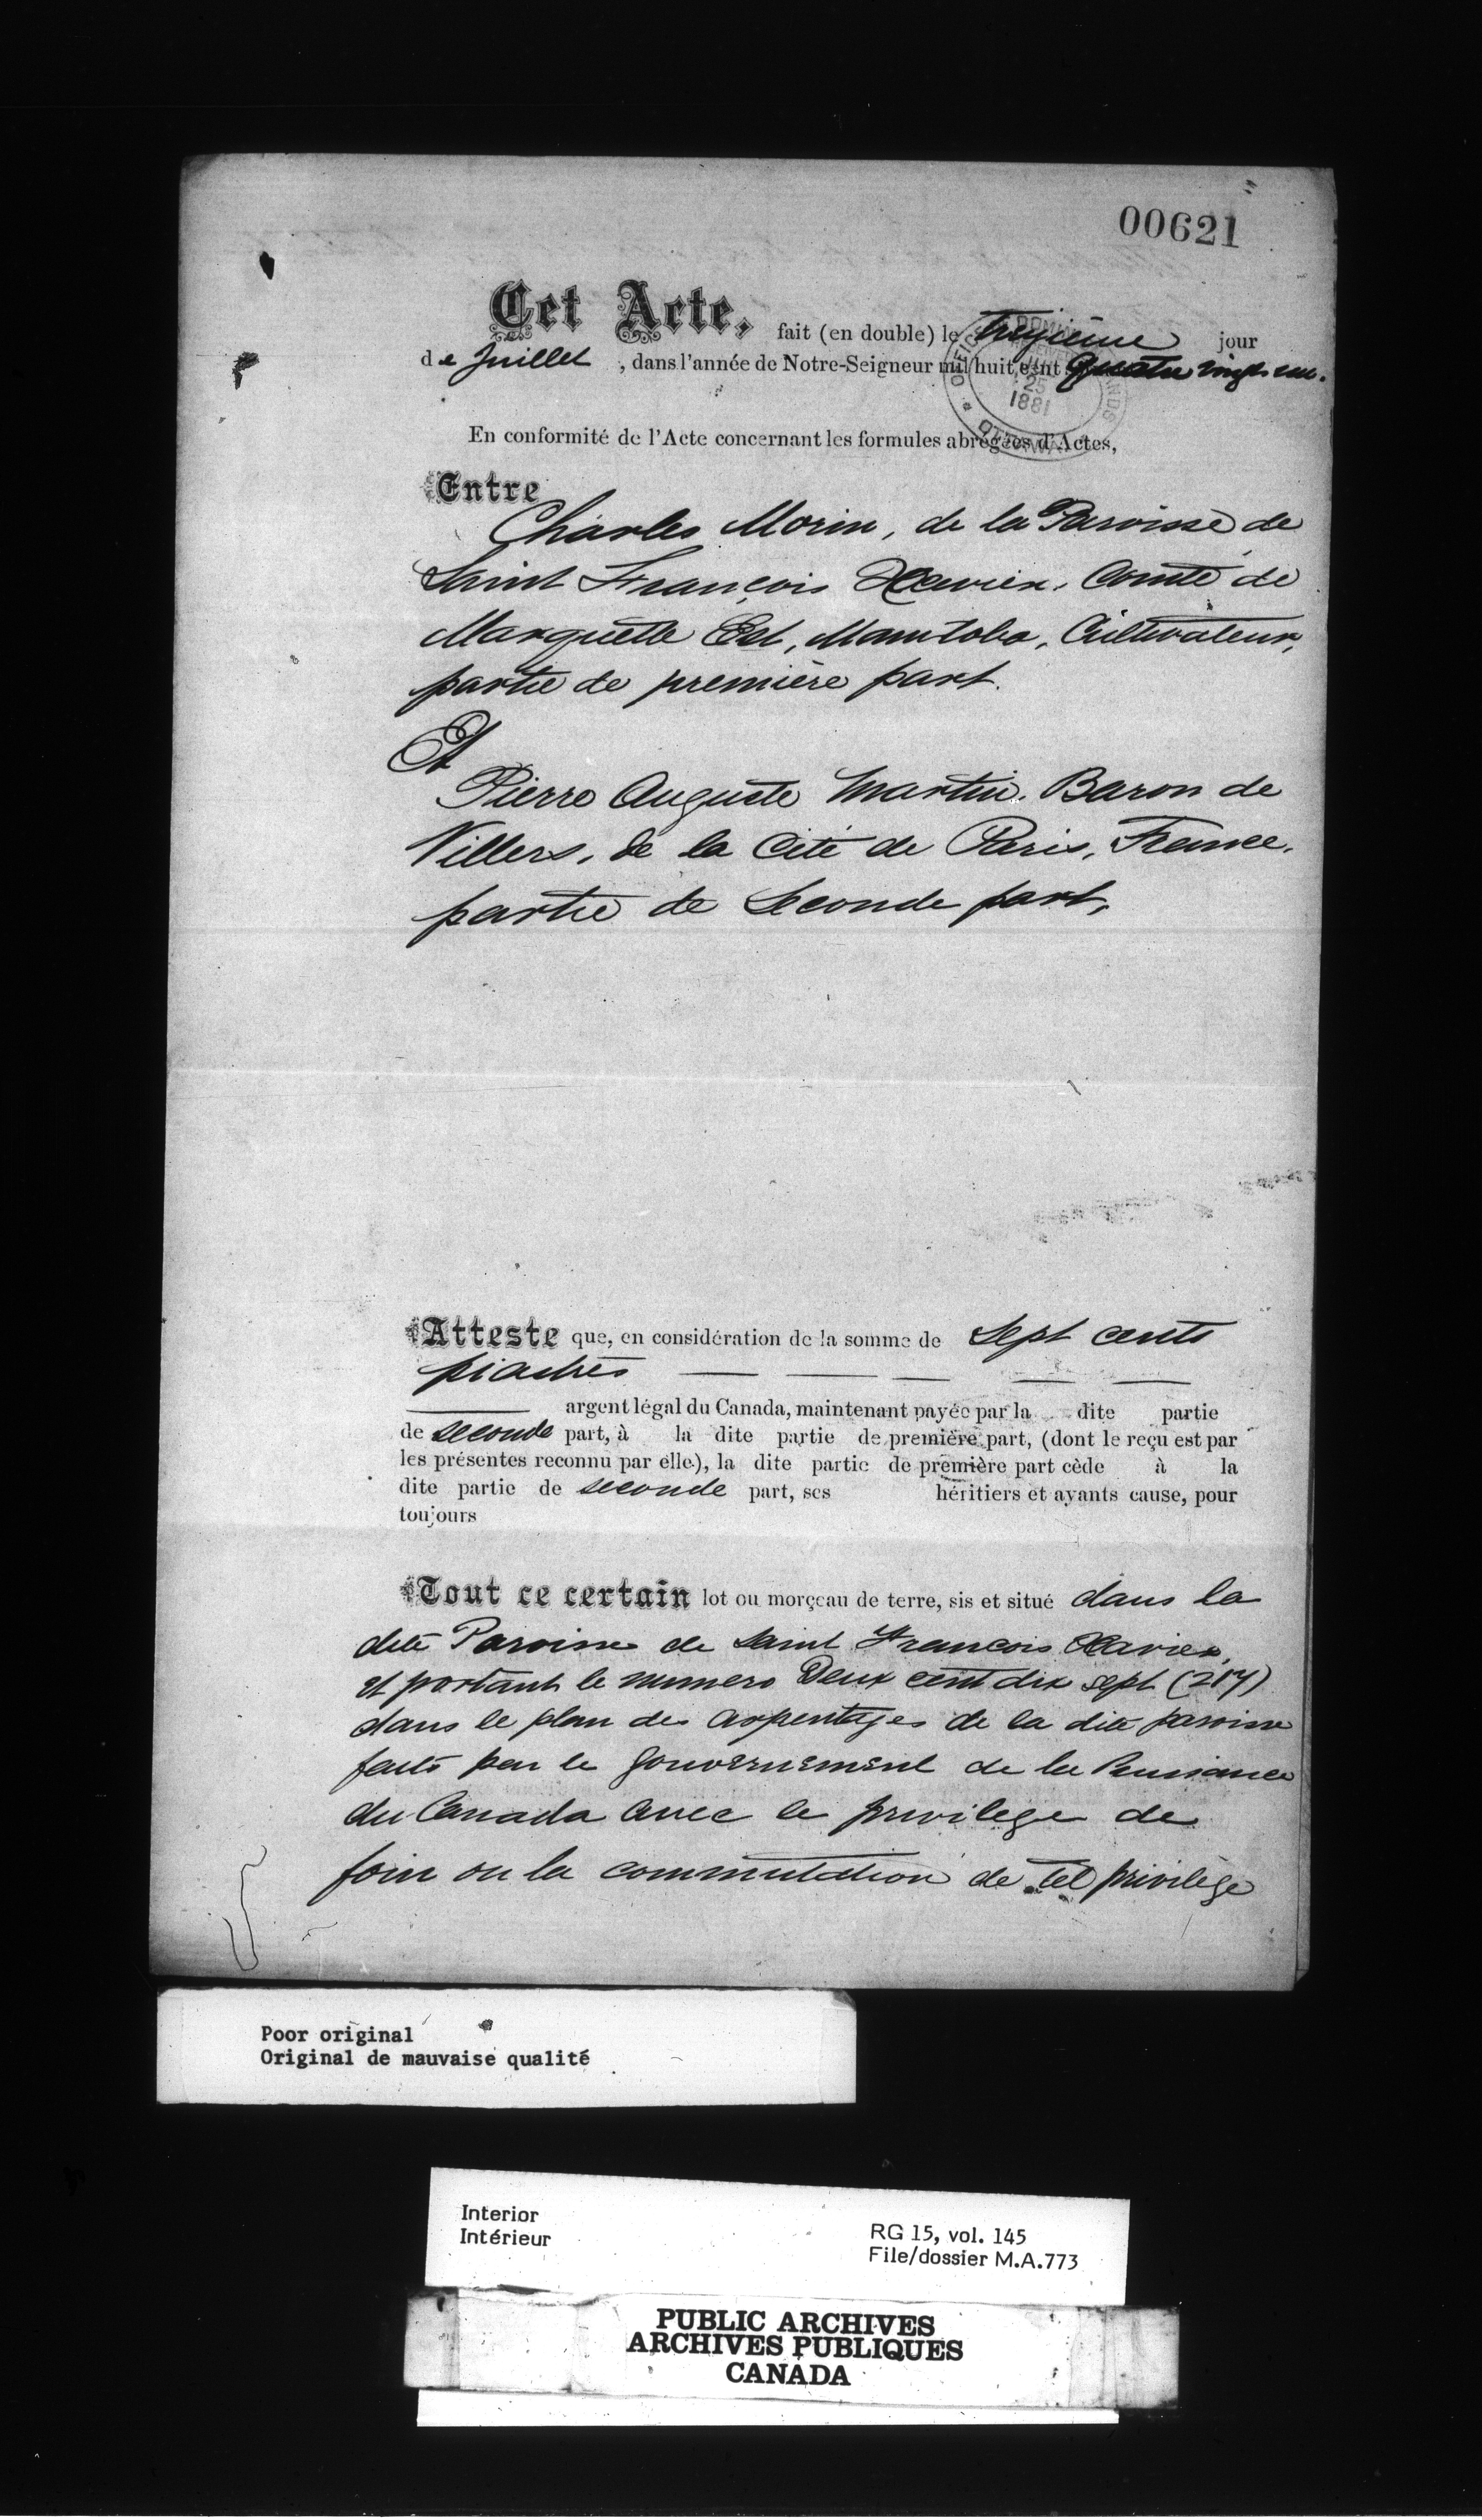 00621
Cet Acte, fait (en double) le Treizième jour
de Juillet, dans l'année de Notre-Seigneur mil huit cent Quatre vingt un.
DOMINION LANDS OFFICE
25
1881
OTTAWA
En conformité de l'Acte concernant les formules abrégées d'Actes,
Entre
Charles Morin, de la Paroisse de
Saint François Xavier, Comté de
Marquette Est, Manitoba, Cultivateur,
partie de première part.
Et
Pierre Auguste Martin, Baron de
Villers, de la Cité de Paris, France,
partie de Seconde part,
Atteste que, en considération de la somme de Sept cents
piastres
argent légal du Canada, maintenant payée par la dite partie
de seconde part, à la dite partie de première part, (dont le reçu est par
les présentes reconnu par elle), la dite partie de première part cède à la
dite partie de seconde part, ses héritiers et ayants cause, pour
toujours
Tout ce certain lot ou morçeau de terre, sis et situé dans la
dite Paroisse de Saint François Xavier,
et portant le numero Deux cent dix sept (217)
dans le plan des arpentages de la dite paroisse
faits par le Gouvernement de la Puissance
du Canada avec le privilege de
foin ou la commutation de tel privilège
Poor original
Original de mauvaise qualité
Interior
Intérieur
RG 15, vol. 145
File/dossier M.A.773
PUBLIC ARCHIVES
ARCHIVES PUBLIQUES
CANADA